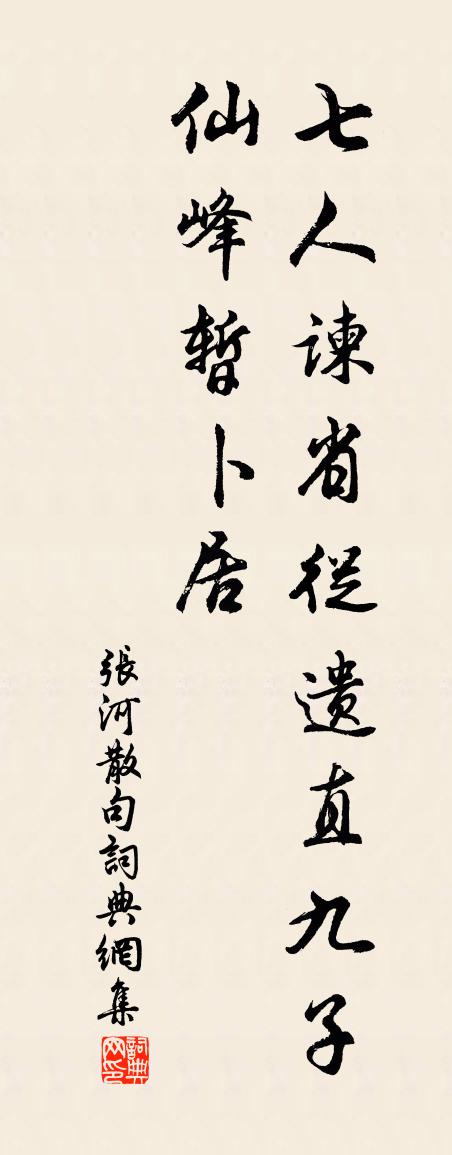 七人諫省從遺直九子
仙峰暫卜居
張河散句詞典網集
詞典网印